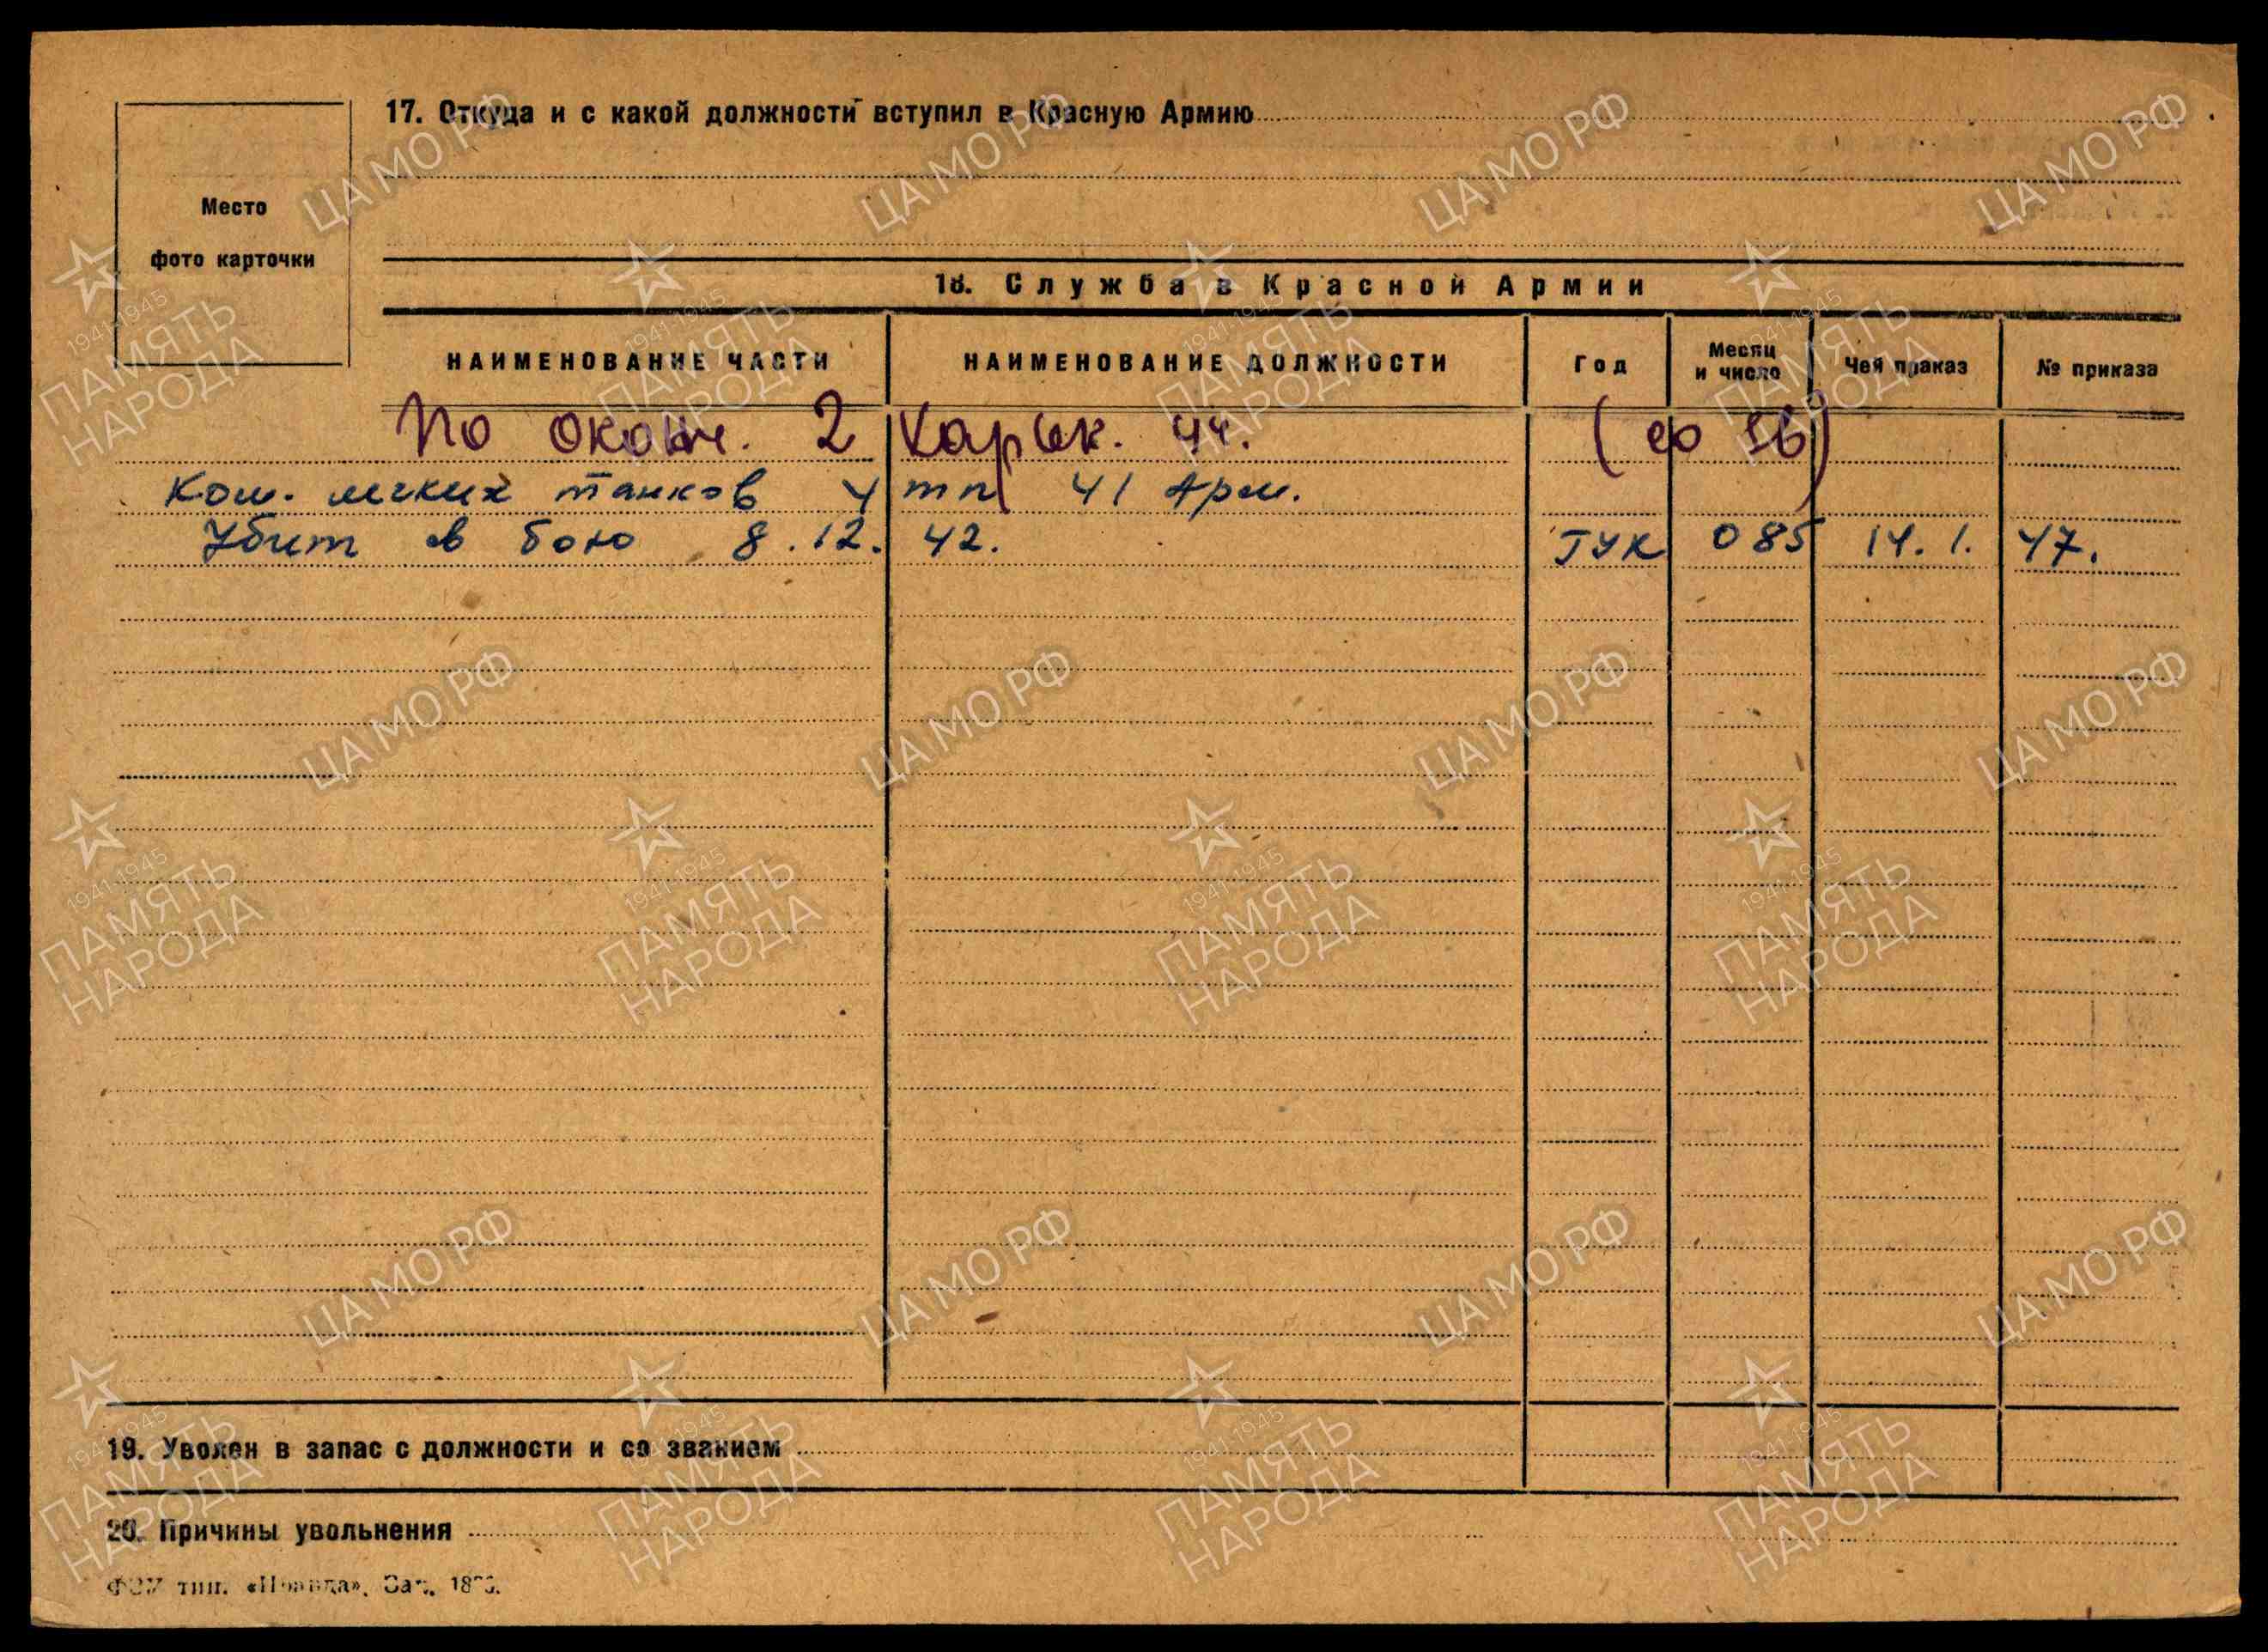 17. Откуда и с какой должности вступил в Красную Армию
Место
фото карточки
18. Служба в Красной Армии
НАИМЕНОВАНИЕ ЧАСТИ НАИМЕНОВАНИЕ ДОЛЖНОСТИ Год Месяц и число Чей приказ № приказа
По оконч. 2 Харьк.
Ком. легких танков 4 тп 41 Арм.
Убит в бою 8.12.42. ГУК 085 14.1.47.
19. Уволен в запас с должности и со званием
20. Причины увольнения
тип. «Правда».
ЦА МО РФ
1941-1945
ПАМЯТЬ
НАРОДА